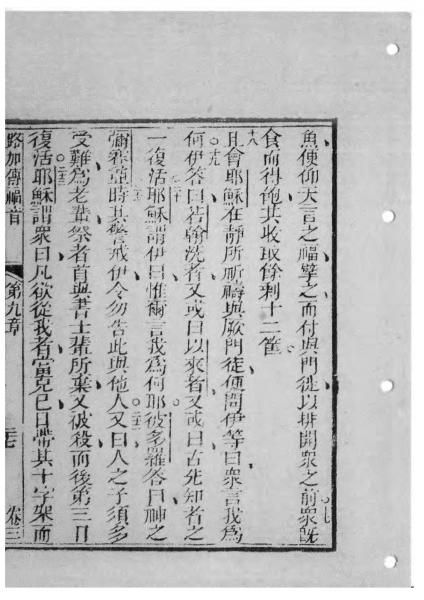 魚便仰天言之福擘之而付與門徒以排開眾之前眾既十七
食而得飽其收取餘剩十二筐
十八且會耶穌在靜所祈禱與厥門徒便問伊等曰眾言我為
十九何伊答曰若翰洗者又或曰以來者又或曰古先知者之
一復活二十耶穌謂伊曰惟爾言我為何耶彼多羅答曰神之
彌賽亞時其警戒伊令勿告此與他人又曰人之子須多
受難為老輩祭者首與書士輩所棄又被殺而後第三日
復活耶穌謂眾曰凡欲從我者當克己日帶其十字架而
路加傳福音 第九章 卷三